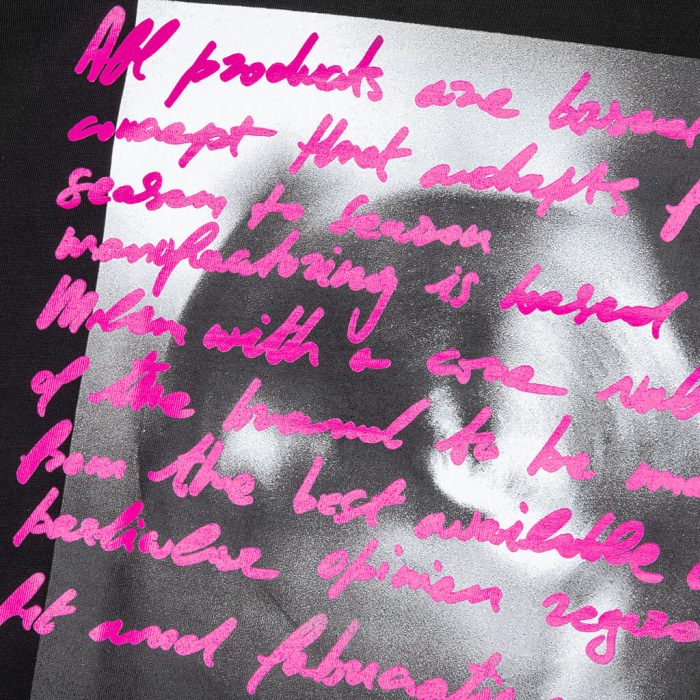 All products are based
concept that adapts f
season to season
manufactoring is based
Milan with a core valu
of the brand to be ma
from the best available
particular opinion regar
fit and fabricati